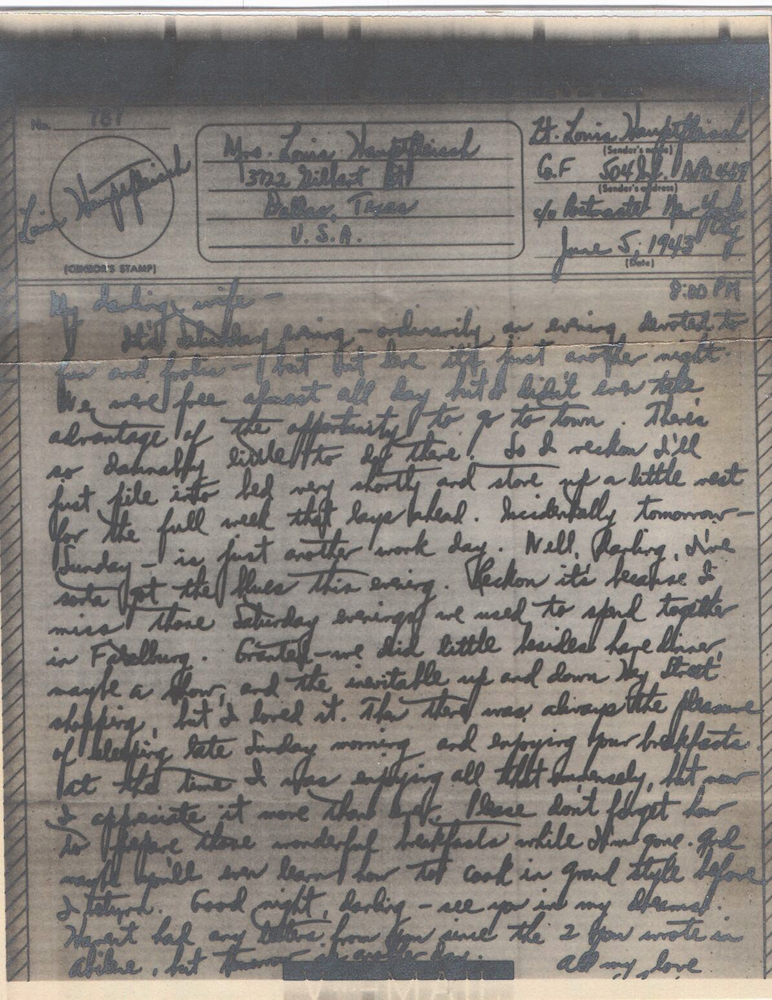 No. 187
Mrs. Louis Hauptfleisch
3722 Gilbert
Dallas, Texas
U.S.A.
Louis Hauptfleisch
(CENSOR'S STAMP)
Lt. Louis Hauptfleisch
(Sender's name)
Co.F 504 Inf. APO 469
(Sender's address)
c/o Postmaster New York
City
June 5, 1943
(Date)
8:00 PM
My darling wife –
It's Saturday evening – ordinarily an evening devoted to
fun and frolic – but out here it's just another night.
We were free almost all day but I didn't even take
advantage of the opportunity to go to town. There's
so damnably little to do there. So I reckon I'll
just pile into bed very shortly and store up a little rest
for the full week that lays ahead. Incidentally tomorrow –
Sunday – is just another work day. Well, Darling, I've
sorta got the blues this evening. Reckon it's because I
miss those Saturday evenings we used to spend together
in . Granted – we did little besides have dinner,
maybe a show, and the inevitable up and down Hay Street
shopping, but I loved it. Then there was always the pleasure
of sleeping late Sunday morning and enjoying our breakfasts.
At the time I was enjoying all that immensely, but now
I appreciate it more than ever. Please don't forget how
to prepare those wonderful breakfasts while I'm gone. And
maybe you'll even learn how to cook in grand style before
I return. Good night, darling – see you in my dreams.
Haven't had any letters from you since the 2 you wrote in
Abilene, but tomorrow is another day.
All my love
V-MAIL